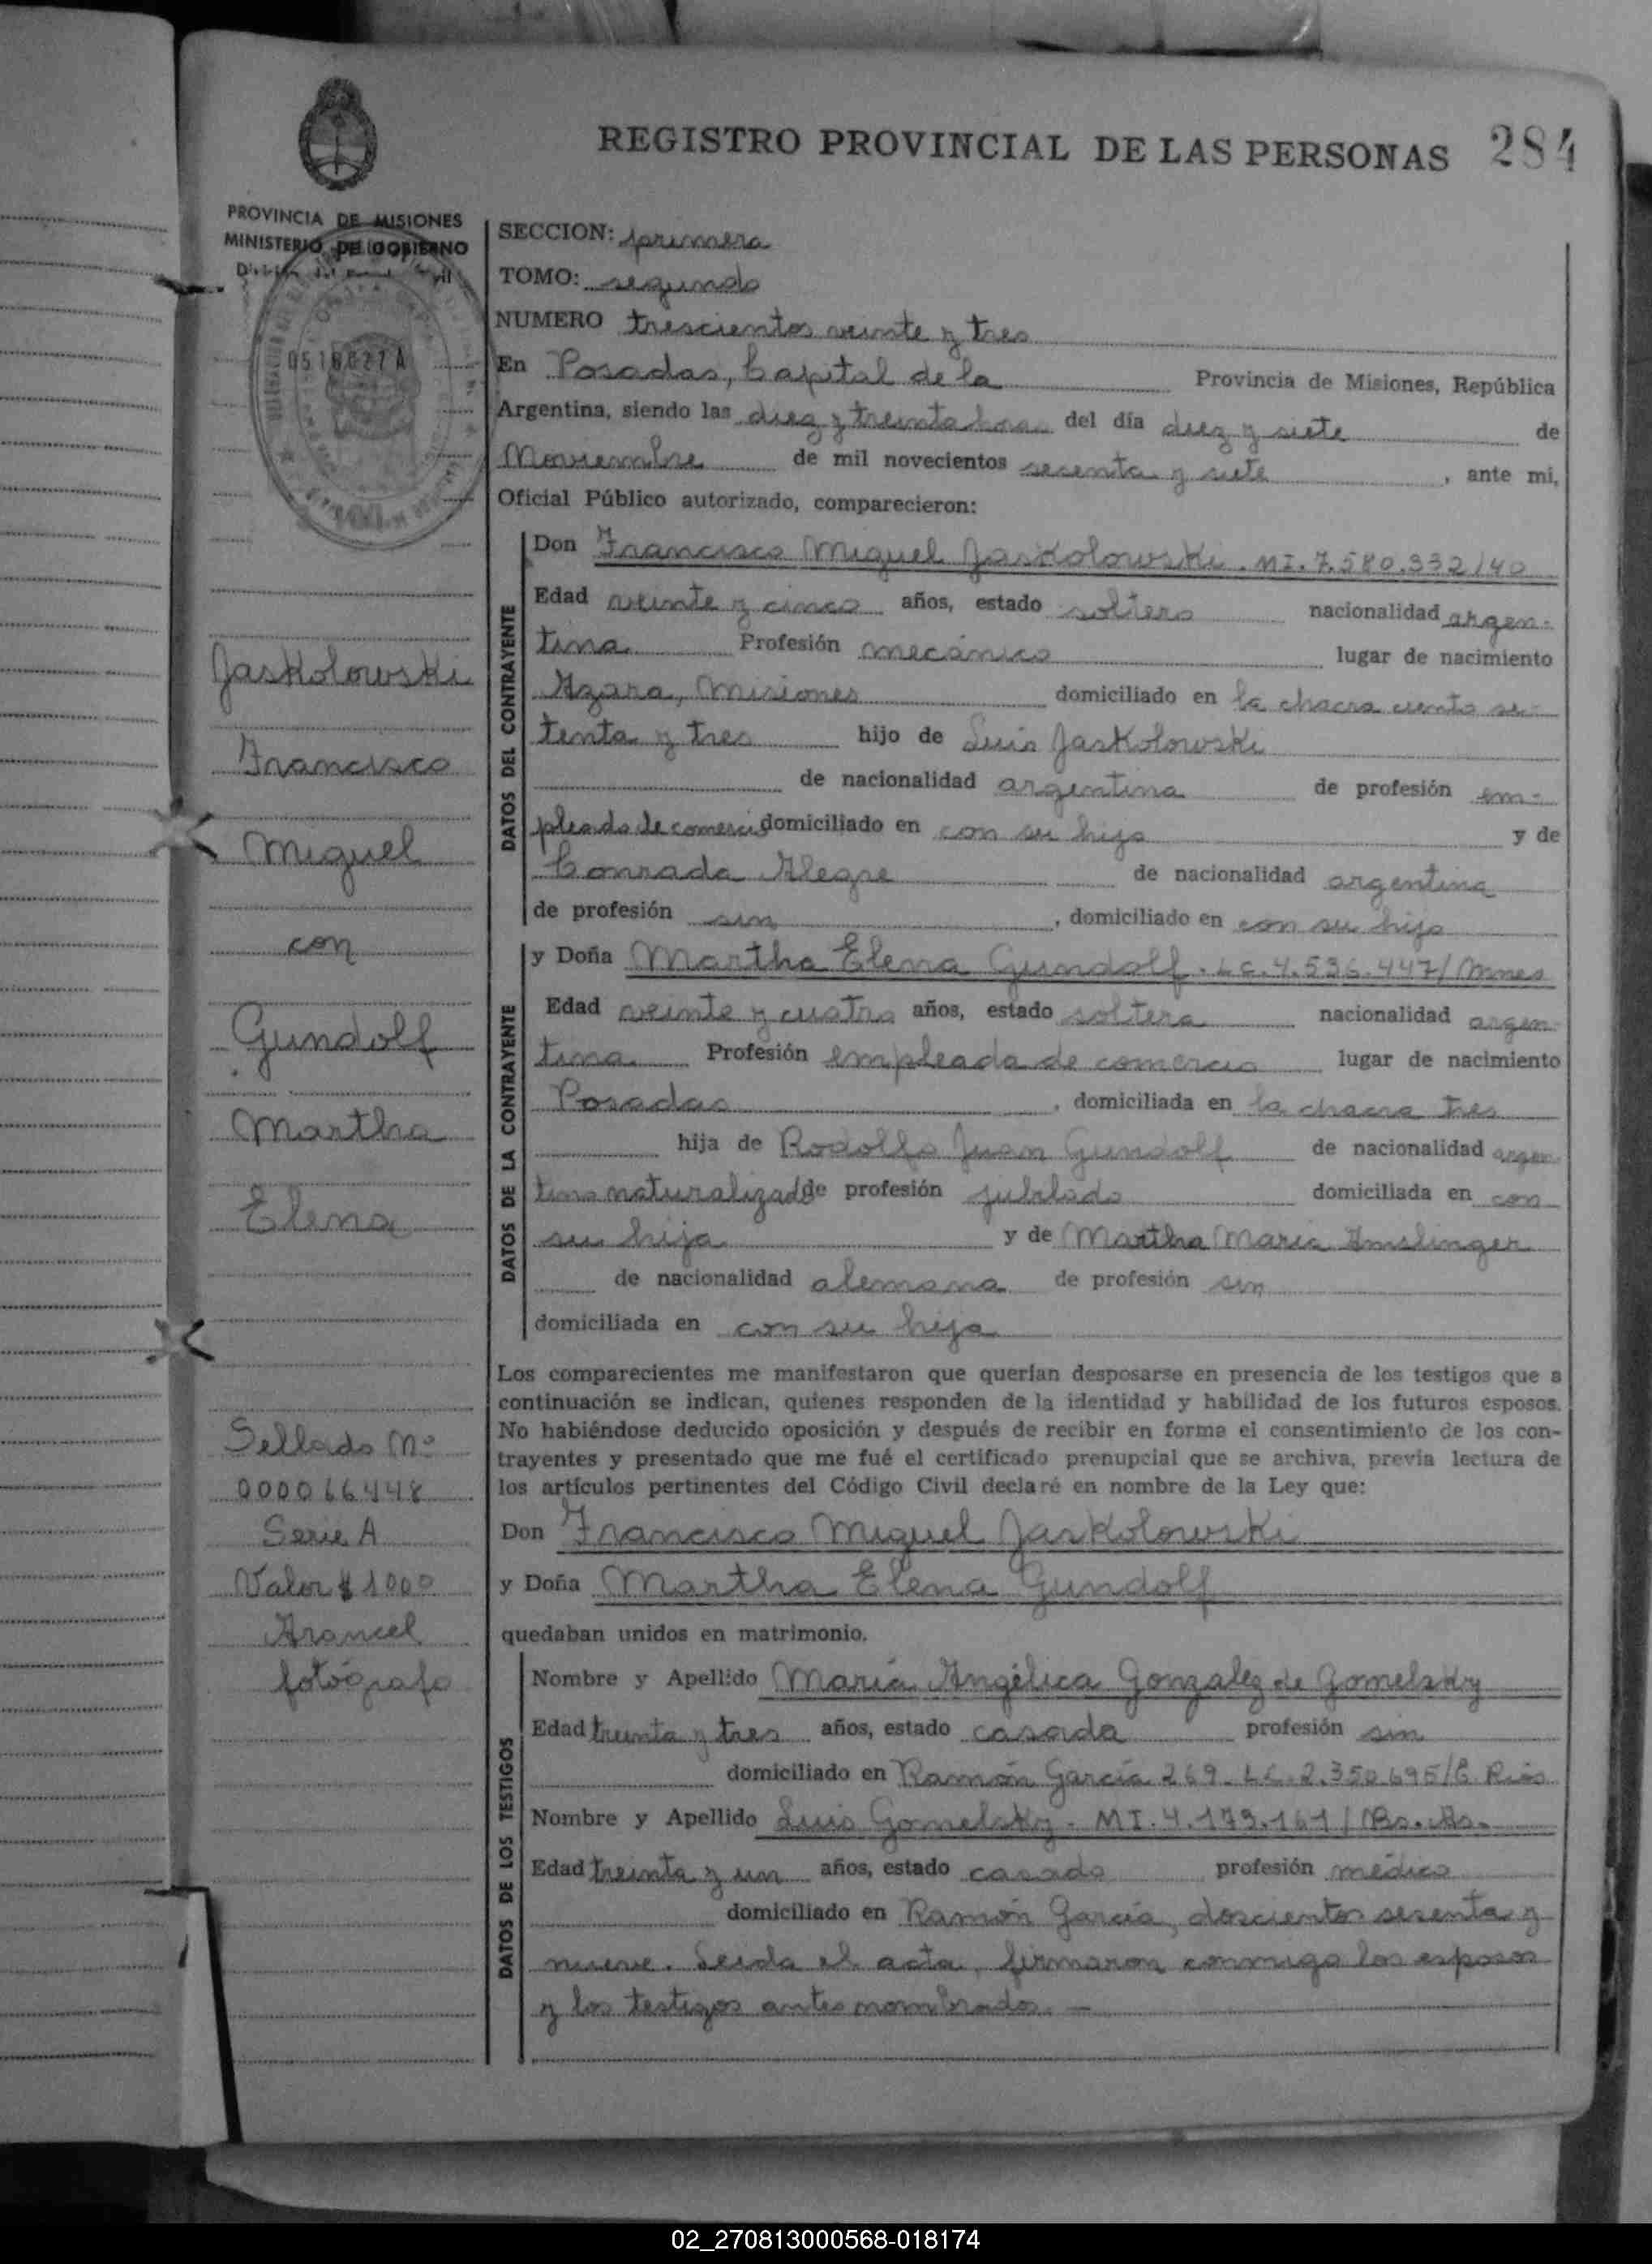 REGISTRO PROVINCIAL DE LAS PERSONAS 284
PROVINCIA DE MISIONES
MINISTERIO DE GOBIERNO
0518027 A
Jaskolowski
Francisco
Miguel
con
Gundolf
Martha
Elena
Sellado Nº
000066448
Serie A
Valor $ 1000
Arancel
fotógrafo
SECCION: primera
TOMO: segundo
NUMERO trescientos veinte y tres
En Posadas, Capital de la Provincia de Misiones, República
Argentina, siendo las diez y treinta horas del día diez y siete de
Noviembre de mil novecientos sesenta y siete, ante mi,
Oficial Público autorizado, comparecieron:
DATOS DEL CONTRAYENTE
Don Francisco Miguel Jaskolowski. MI. 7.580.332/40
Edad veinte y cinco años, estado soltero nacionalidad argen-
tina Profesión mecánico lugar de nacimiento
Azara, Misiones domiciliado en la chacra ciento se-
tenta y tres hijo de Luis Jaskolowski
de nacionalidad argentina de profesión em-
pleado de comercio domiciliado en con su hijo y de
Conrada Alegre de nacionalidad argentina
de profesión sin, domiciliado en con su hijo
DATOS DE LA CONTRAYENTE
y Doña Martha Elena Gundolf. LC. 4.536.447/Mnes
Edad veinte y cuatro años, estado soltera nacionalidad argen
tina Profesión empleada de comercio lugar de nacimiento
Posadas, domiciliada en la chacra tres
hija de Rodolfo Juan Gundolf de nacionalidad argen
tina naturalizado de profesión jubilado domiciliada en con
su hija y de Martha María Amslinger
de nacionalidad alemana de profesión sin
domiciliada en con su hija
Los comparecientes me manifestaron que querían desposarse en presencia de los testigos que a
continuación se indican, quienes responden de la identidad y habilidad de los futuros esposos.
No habiéndose deducido oposición y después de recibir en forma el consentimiento de los con-
trayentes y presentado que me fué el certificado prenupcial que se archiva, previa lectura de
los artículos pertinentes del Código Civil declaré en nombre de la Ley que:
Don Francisco Miguel Jaskolowski
y Doña Martha Elena Gundolf
quedaban unidos en matrimonio.
DATOS DE LOS TESTIGOS
Nombre y Apellido María Angélica Gonzalez de Gomelsky
Edad treinta y tres años, estado casada profesión sin
domiciliado en Ramón García 269. LC. 2.350.695/E. Rios
Nombre y Apellido Luis Gomelsky. MI. 4.173.161/Bs. As.
Edad treinta y un años, estado casado profesión médico
domiciliado en Ramón García, doscientos sesenta y
nueve. Leida el acta, firmaron conmigo los esposos
y los testigos antes nombrados. —
02_270813000568-018174